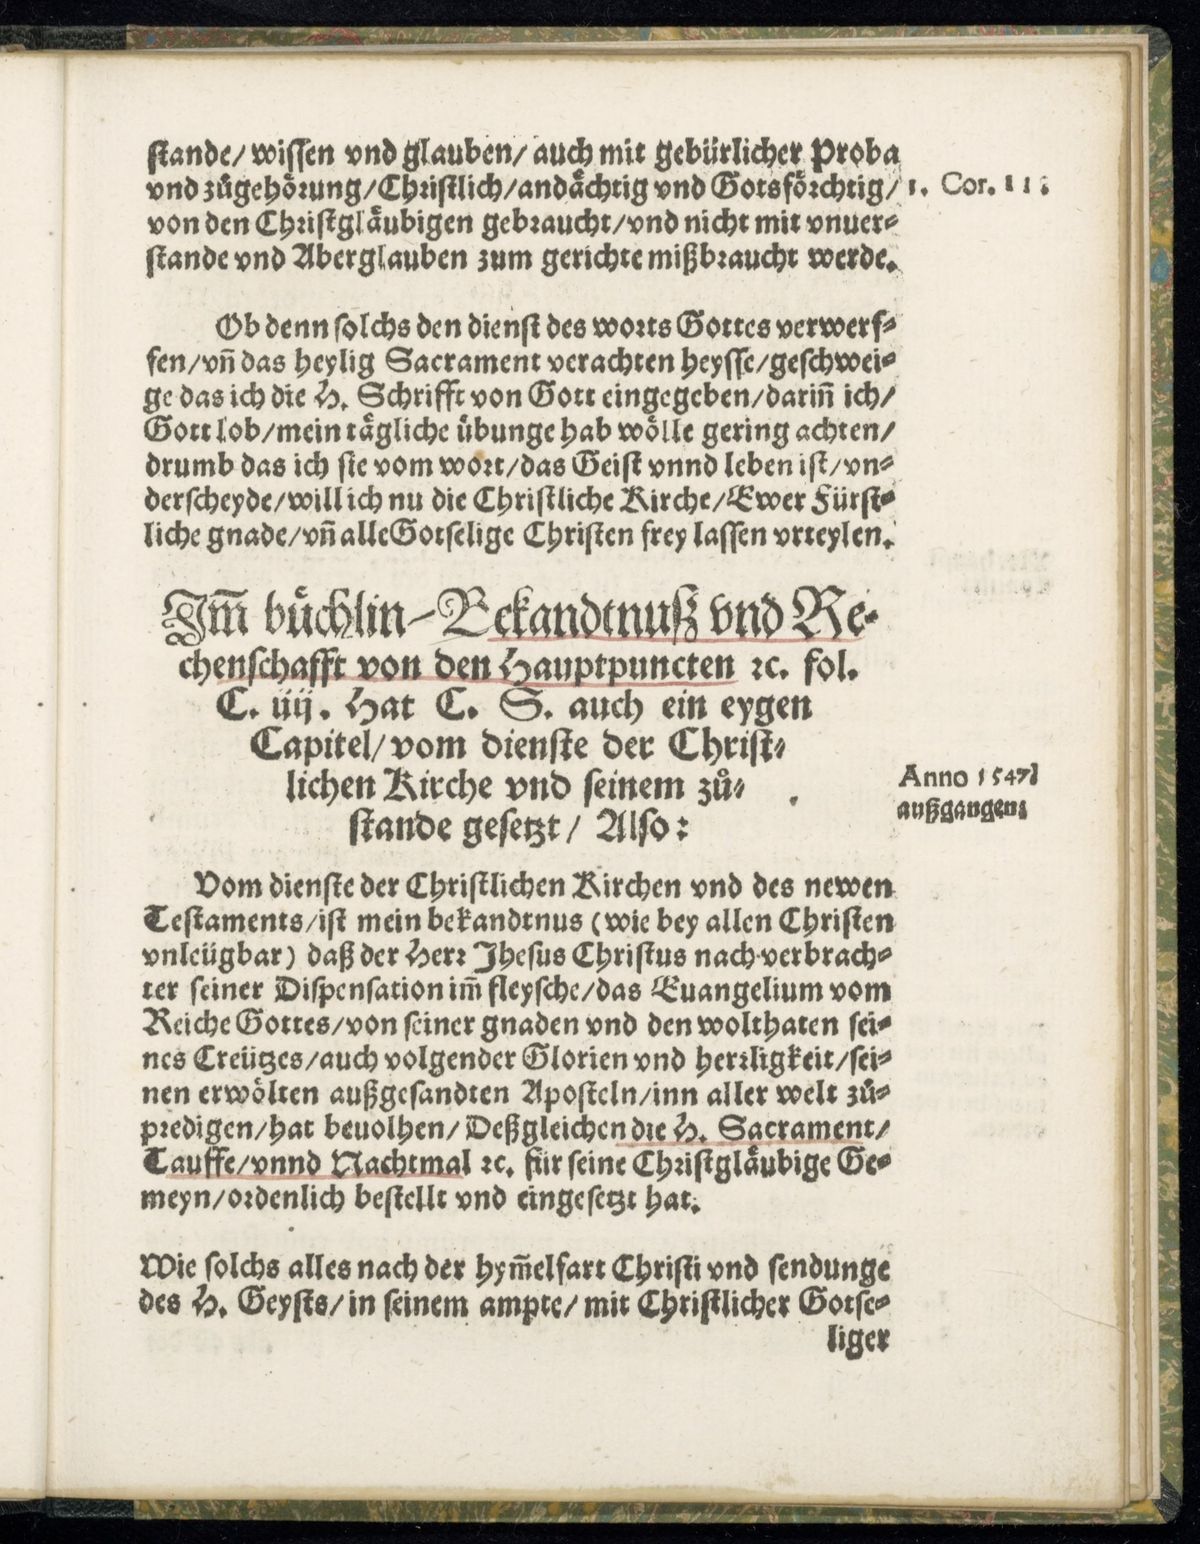 stande/ wissen vnd glauben/ auch mit gebürlicher Proba
vnd zůgehörung/Christlich/andächtig vnd Gotsförchtig/ 1. Cor. 11.
von den Christgläubigen gebraucht/vnd nicht mit vnuer-
stande vnd Aberglauben zum gerichte mißbraucht werde.
Ob denn solchs den dienst des worts Gottes verwerf-
fen/vn̄ das heylig Sacrament verachten heysse/geschwei-
ge das ich die H. Schrifft von Gott eingegeben/darin̄ ich/
Gott lob/mein tägliche übunge hab wölle gering achten/
drumb das ich sie vom wort/das Geist vnnd leben ist/vn-
derscheyde/will ich nu die Christliche Kirche/Ewer Fürst-
liche gnade/vn̄ alle Gotselige Christen frey lassen vrteylen.
Im̄ büchlin-Bekandtnuß vnd Re-
chenschafft von den Hauptpuncten ꝛc. fol.
C. iiij. Hat C. S. auch ein eygen
Capitel/vom dienste der Christ-
lichen Kirche vnd seinem zů-
stande gesetzt/ Also:
Anno 1547
außgangen:
Vom dienste der Christlichen Kirchen vnd des newen
Testaments/ist mein bekandtnus (wie bey allen Christen
vnleügbar) daß der Herr Jhesus Christus nach verbrach-
ter seiner Dispensation im̄ fleysche/das Euangelium vom
Reiche Gottes/von seiner gnaden vnd den wolthaten sei-
nes Creützes/auch volgender Glorien vnd herrligkeit/sei-
nen erwölten außgesandten Aposteln/inn aller welt zů-
predigen/hat beuolhen/ Deßgleichen die H. Sacrament/
Tauffe/vnnd Nachtmal ꝛc. für seine Christgläubige Ge-
meyn/ordenlich bestellt vnd eingesetzt hat.
Wie solchs alles nach der hym̄elfart Christi vnd sendunge
des H. Geysts/in seinem ampte/mit Christlicher Gotse-
liger